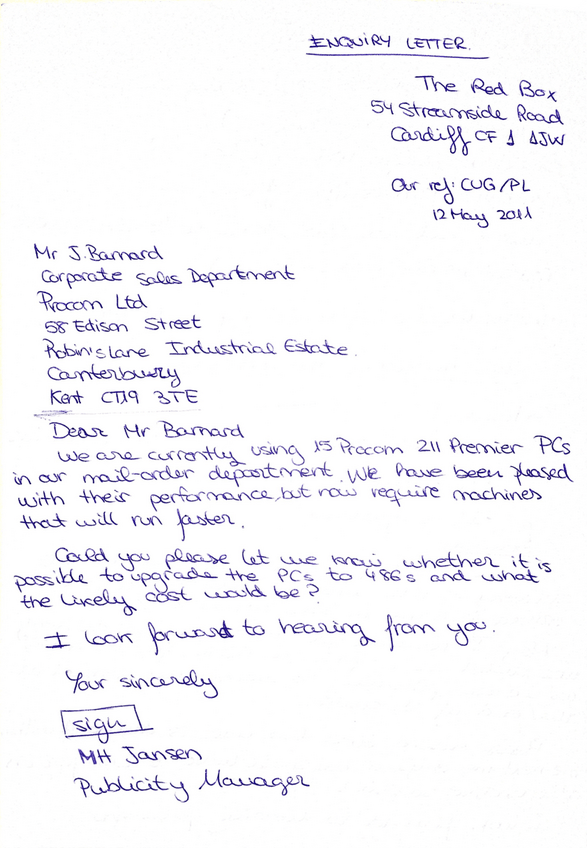 ENQUIRY LETTER.
The Red Box
54 Streamside Road
Cardiff CF 1 1JW
Our ref: CUG/PL
12 May 2011
Mr J. Barnard
Corporate Sales Department
Procom Ltd
58 Edison Street
Robin's Lane Industrial Estate.
Canterbury
Kent CT19 3TE
Dear Mr Barnard
We are currently using 15 Procom 211 Premier PCs
in our mail-order department. We have been pleased
with their performance, but now require machines
that will run faster.
Could you please let me know whether it is
possible to upgrade the PCs to 486s and what
the likely cost would be?
I look forward to hearing from you.
Your sincerely
sign
MH Jansen
Publicity Manager